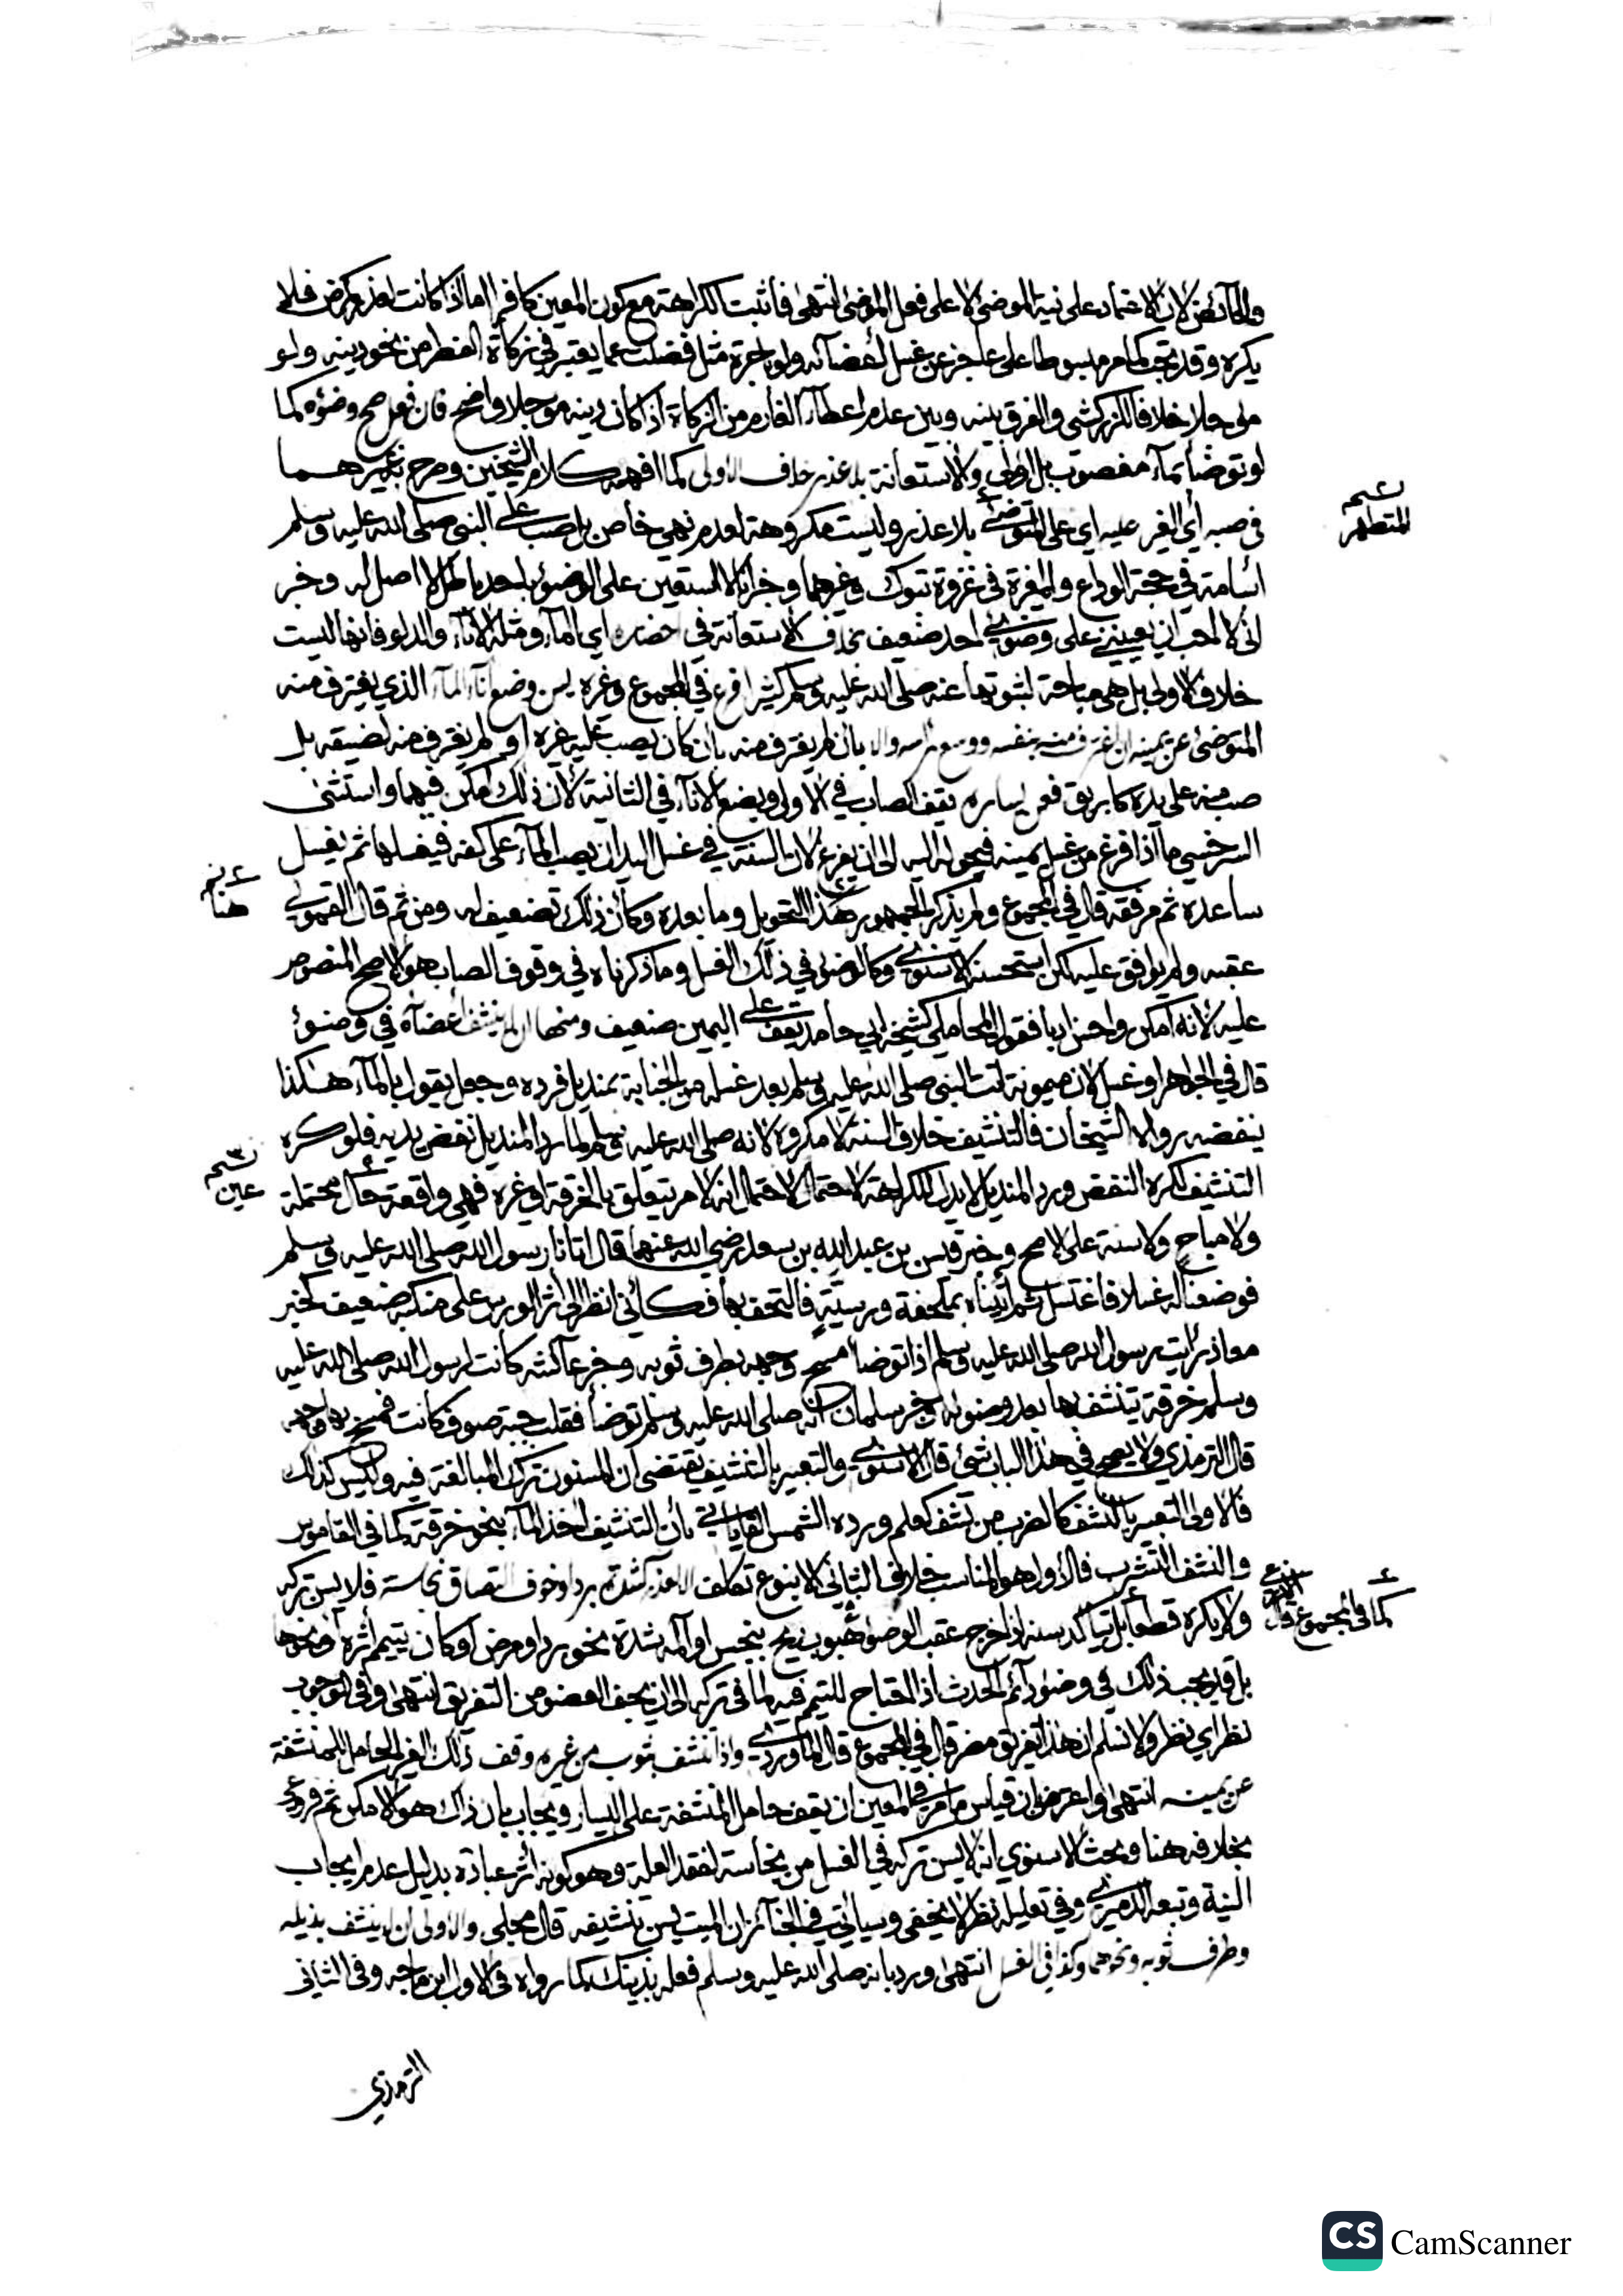 والحائض لان الاعتماد على نية المتوضئ لا على فعل الموضئ انتهى فأثبت الكراهة مع كون المعين كافرا اما اذا كانت لعذر كمرض فلا
يكره وقد تجب كما مر مبسوطا على عاجز عن غسل أعضائه ولو باجرة مثل فضلت عما يعتبر في زكاة الفطر من نحو دينه ولو
مؤجلا خلافا للزركشي والفرق بينه وبين عدم اعطاء الغارم من الزكاة اذا كان دينه مؤجلا واضح فان فعل صح وضوءه كما
لو توضأ بماء مغصوب بل اولى والاستعانة بلا عذر خلاف الاولى كما افهمه كلام الشيخين وصرح به غيرهما
في صبه أي الغير عليه اي على المتوضئ بلا عذر وليست مكروهة لعدم نهي خاص بل صب على النبي صلى الله عليه وسلم
أسامة في حجة الوداع والمغيرة في غزوة تبوك وغيرهما وخبر انا لا استعين على الوضوء باحد باطل لا اصل له وخبر
اني لا احب ان يعينني على وضوئي احد ضعيف بخلاف الاستعانة في احضاره اي الماء ومثله الاناء والدلو فانها ليست
خلاف الاولى بل هي مباحة لثبوتها عنه صلى الله عليه وسلم كثيرا فرع في المجموع وغيره يسن وضع اناء الماء الذي يغترف منه
المتوضئ عن يمينه ان اغترف منه بنفسه ووسع رأسه والا بان لم يغترف منه بان كان يصب عليه غيره او لم يغترف منه لضيقه بل
صب منه على يده كابريق فعن يساره يقف الصاب في الاولى ويضع الاناء في الثانية لأن ذلك امكن فيهما واستثنى
السرخسي ما اذا فرغ من غسل يمينه فيحوله اليه الى ان يفرغ لان السنة في غسل اليد ان يصب الماء على كفه فيغسلها ثم يغسل
ساعده ثم مرفقه قال في المجموع ولم يذكر الجمهور هذا التحويل وما بعده وكأن ذلك تضعيف له ومن ثم قال القمولي
عقبه ولم يوافق عليه لكن استحسنه الاسنوي وكالوضوء في ذلك الغسل وما ذكرناه في وقوف الصاب هو الاصح المنصوص
عليه لانه امكن واحسن ادبا فقول المحاملي كشيخه ابي حامد يقف على اليمين ضعيف ومنها ان لا ينشف أعضاءه في وضوء
قال في الجواهر او غسل لان ميمونة اتت النبي صلى الله عليه وسلم بعد غسله من الجنابة بمنديل فرده وجعل يقول بالماء هكذا
ينفضه رواه الشيخان فالتنشيف خلاف السنة لا مكروه لانه صلى الله عليه وسلم لما رد المنديل نفض يديه فلو كره
التنشيف لكره النفض ورد المنديل لا يدل للكراهة لاحتمال انه لامر يتعلق بالخرقة او غيره فهي واقعة حال محتملة
ولا مباح ولا سنة على الاصح وخبر قيس بن عبد الله بن سعد رضي الله عنهما قال اتانا رسول الله صلى الله عليه وسلم
فوضعنا له غسلا فاغتسل ثم أتيناه بملحفة ورسية فالتحف بها فكأني انظر الى أثر الورس على منكبه ضعيف كخبر
معاذ رأيت رسول الله صلى الله عليه وسلم اذا توضأ مسح وجهه بطرف ثوبه وخبر عائشة كانت لرسول الله صلى الله عليه
وسلم خرقة يتنشف بها بعد وضوئه وخبر سلمان انه صلى الله عليه وسلم توضأ فقلب جبة صوف كانت فمسح بها وجهه
قال الترمذي ولا يصح في هذا الباب شئ قال الاسنوي والتعبير بالتنشيف يقتضي ان المسنون ترك المبالغة فيه وليس كذلك
فالاولى التعبير بالنشف كالضرب من نشف كعلم ورده الشمس القاياتي بأن التنشيف اخذ الماء بنحو خرقة كما في القاموس
والنشف التشرب فالاول هو المناسب خلاف الثاني الا بنوع تكلف الا لعذر كشدة برد او خوف التصاق نجاسة فلا يسن تركه
ولا يكره قطعا بل يتأكد سنه اذا خرج عقب الوضوء لهبوب ريح بنجس او آلمه بشدة نحو برد او مرض او كان يتيمم أثره او نحوها
بل قد يجب ذلك في وضوء دائم الحدث اذا احتاج للتيمم فيه لما في تركه الى ان يجف العضو من التفريق انتهى وفي الوجوب
نظر اي نظر ولا نسلم ان هذا تفريق مضر قال في المجموع قال الماوردي واذا تنشف بثوب من غيره وقف ذلك الغير الحامل للمنشفة
عن يمينه انتهى واعترض ان قياس ما مر في المعين ان يقف حامل المنشفة على اليسار ويجاب بان ذاك هو الامكن ثم فروعي
بخلافه هنا وبحث الاسنوي انه لا يسن تركه في الغسل من نجاسة لفقد العلة وهو كونه أثر عبادة بدليل عدم ايجاب
النية وتبعه الدميري وفي تعليله نظر لا يخفى وسيأتي في الجنائز ان الميت يسن تنشيفه قال مجلي والاولى ان لا ينشف بذيله
وطرف ثوبه ونحوهما وكذا في الغسل انتهى ورد بانه صلى الله عليه وسلم فعله بذينك كما رواه في الاول ابن ماجه وفي الثاني
الترمذي
المتطهر
هنا
عين
كما في المجموع قال
CS CamScanner